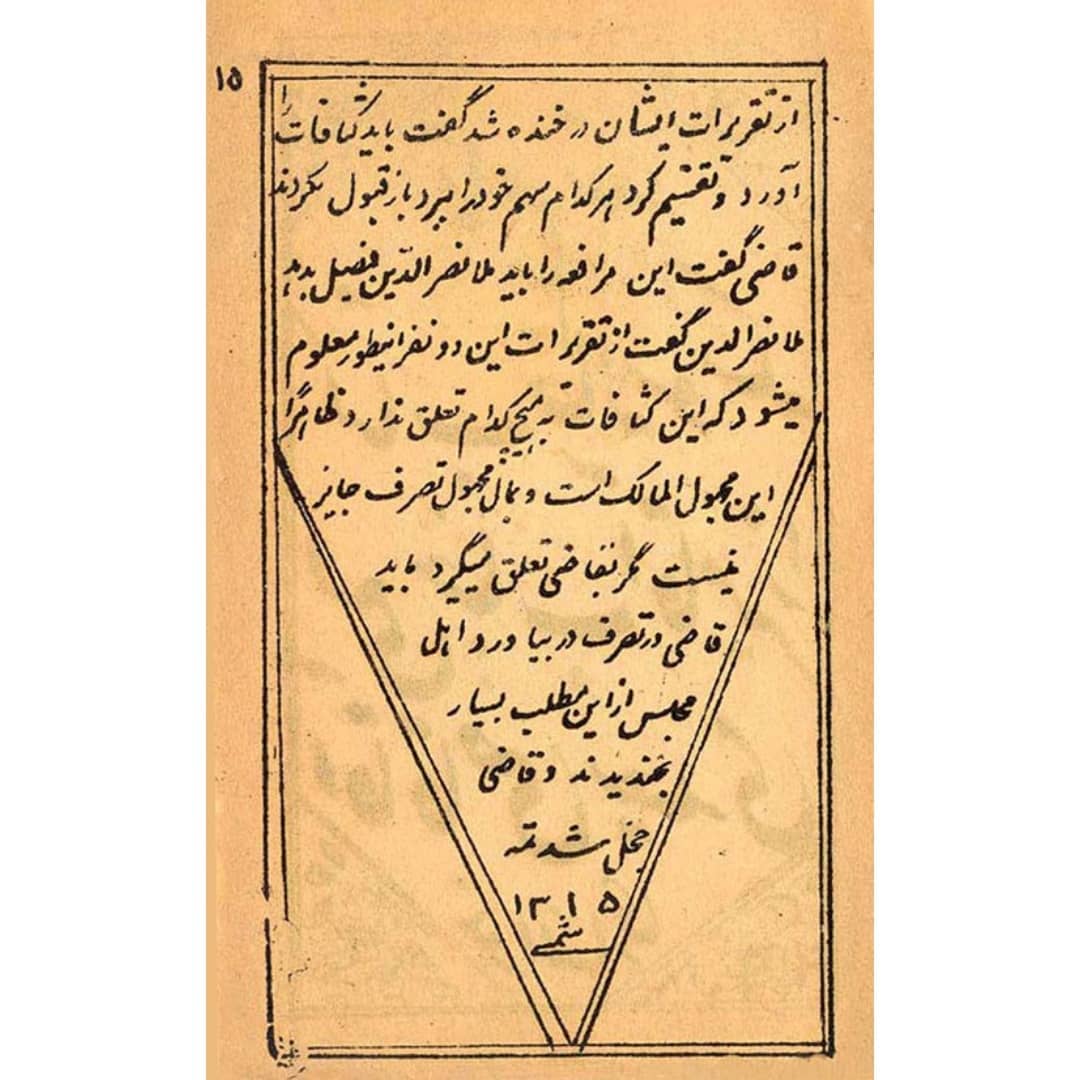 ۱۵
از تقریرات ایشان در خنده شد گفت باید کثافات را
آورد و تقسیم کرد هر کدام سهم خود را ببرد باز قبول نکردند
قاضی گفت این مرافعه را باید ملا نصرالدّین فیصل بدهد
ملا نصرالدین گفت از تقریرات این دو نفر اینطور معلوم
میشود که این کثافات به هیچ کدام تعلق ندارد و ظاهراً
این مجهول المالک است و بمال مجهول تصرف جایز
نیست مگر بقاضی تعلق میگیرد باید
قاضی در تصرف در بیاورد اهل
مجلس از این مطلب بسیار
بخندیدند و قاضی
خجل شد تمه
۱۳۱۵
شمسی